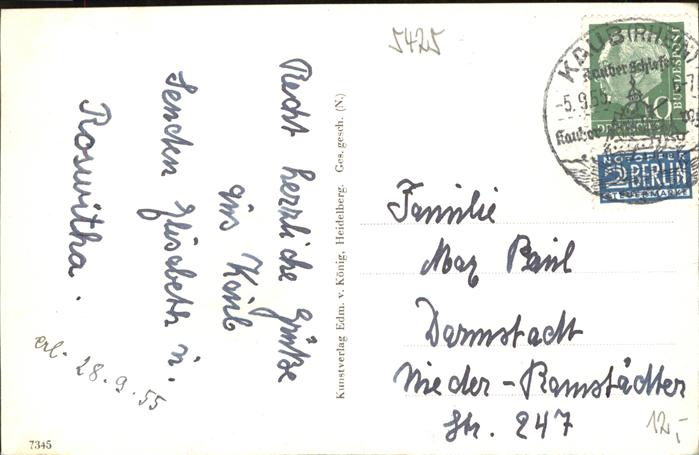 5425
KAUB (RHEIN)
Kauber Schiefer
-5.9.55.
10
BUNDESPOST
NOTOPFER
2 BERLIN
STEUERMARKE
Recht herzliche Grüße
aus Kaub
senden Elisabeth u.
Roswitha.
erl. 28.9.55
7345
Kunstverlag Edm. v. König, Heidelberg. Ges. gesch. (N.)
Familie
Max Paul
Darmstadt
Nieder-Ramstädter
Str. 247
12,-